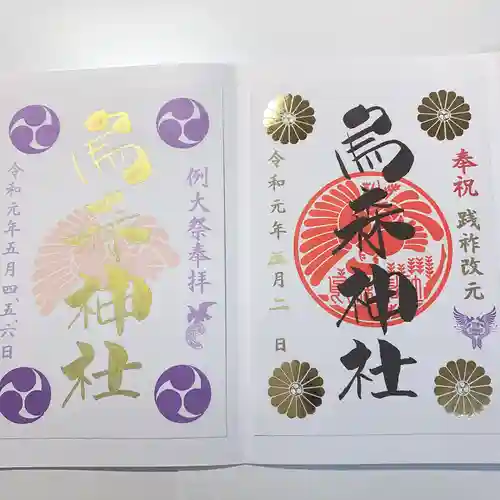 奉祝 践祚改元
烏森神社
令和元年五月二日
例大祭奉拝
烏森神社
令和元年五月四、五、六日